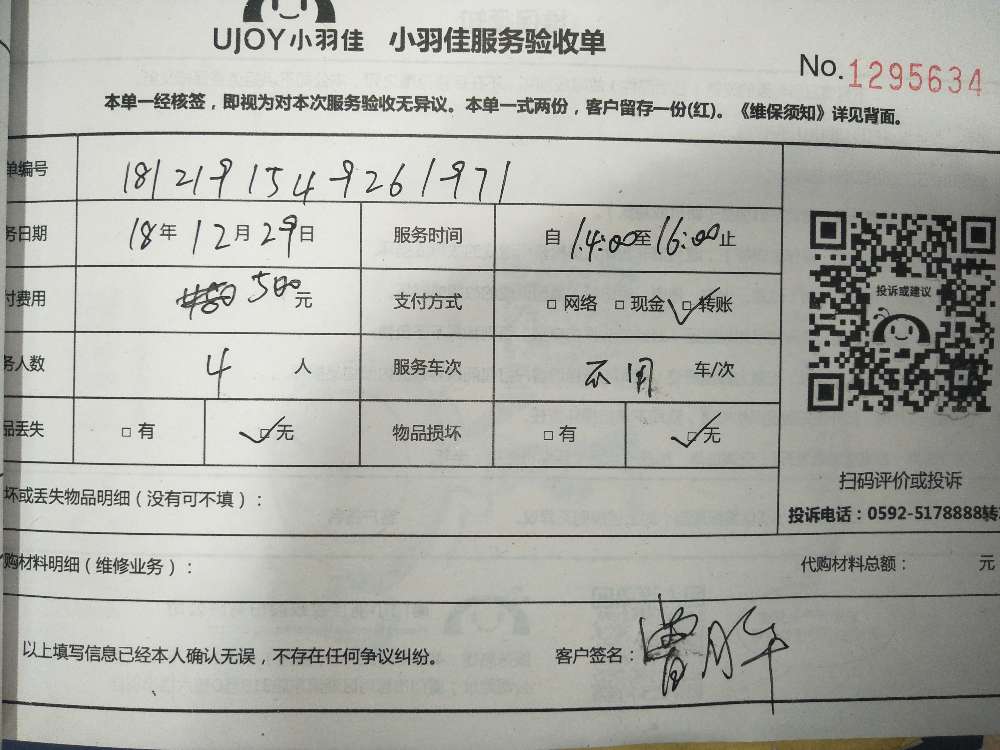 UJOY小羽佳 小羽佳服务验收单
No.1295634
本单一经核签，即视为对本次服务验收无异议。本单一式两份，客户留存一份(红)。《维保须知》详见背面。
单编号 1812191549261971
务日期 18年12月29日 服务时间 自14:00至16:00止
付费用 500元 支付方式 □网络 □现金 □转账
务人数 4人 服务车次 不用 车/次
品丢失 □有 □无 物品损坏 □有 □无
投诉或建议
扫码评价或投诉
投诉电话：0592-5178888转
坏或丢失物品明细（没有可不填）：
购材料明细（维修业务）： 代购材料总额： 元
以上填写信息已经本人确认无误，不存在任何争议纠纷。 客户签名：曾